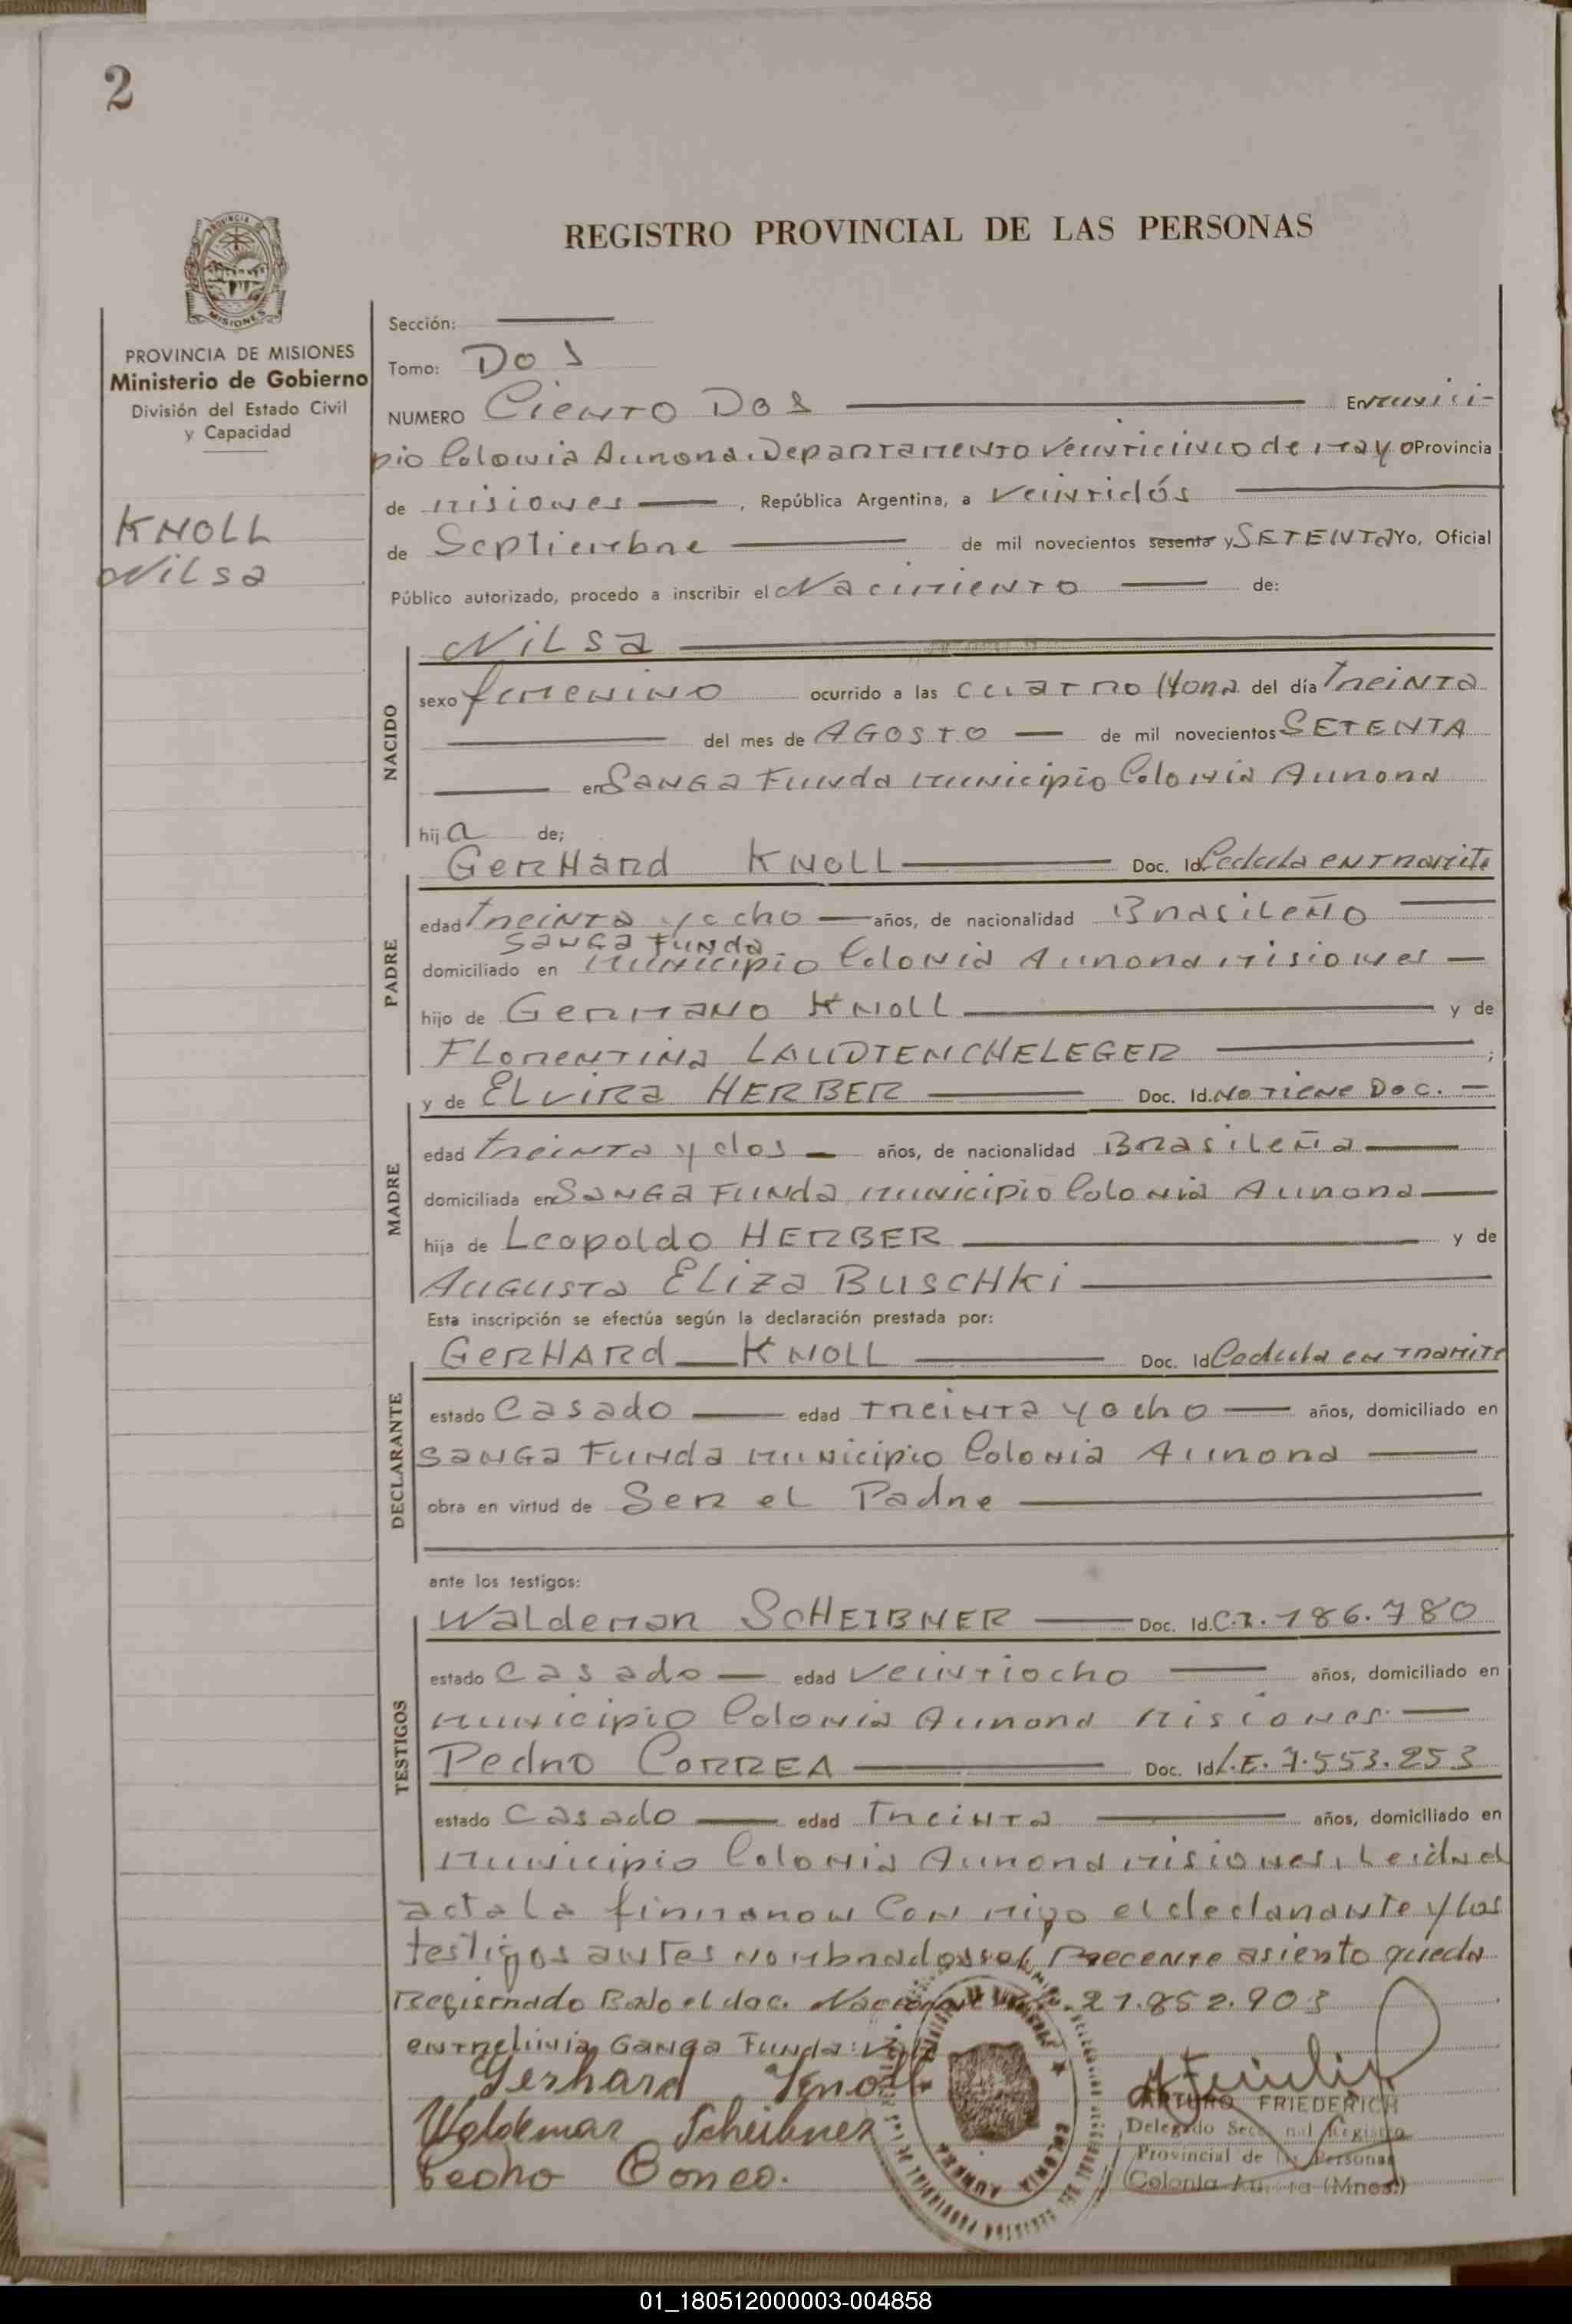 2
REGISTRO PROVINCIAL DE LAS PERSONAS
PROVINCIA
MISIONES
PROVINCIA DE MISIONES
Ministerio de Gobierno
División del Estado Civil
y Capacidad
KNOLL
Nilsa
Sección:
Tomo: Dos
NUMERO Ciento Dos En Munici-
pio Colonia Aurora. Departamento Veinticinco de Mayo Provincia
de Misiones, República Argentina, a Veintidós
de Septiembre de mil novecientos sesenta y SETENTA Yo, Oficial
Público autorizado, procedo a inscribir el Nacimiento de:
NACIDO
Nilsa
sexo femenino ocurrido a las cuatro Hora del día Treinta
del mes de AGOSTO de mil novecientos SETENTA
en Sanga Funda Municipio Colonia Aurora
hija de;
PADRE
GerHard KNOLL Doc. Id. Cedula en Tramite
edad Treinta y ocho años, de nacionalidad Brasileño
Sanga Funda
domiciliado en Municipio Colonia Aurora Misiones
hijo de Germano KNOLL y de
Florentina LAUDTENCHELEGER;
MADRE
y de ELvira HERBER Doc. Id. No Tiene Doc.
edad Treinta y dos años, de nacionalidad Brasileña
domiciliada en Sanga Funda Municipio Colonia Aurora
hija de Leopoldo HERBER y de
Augusta Eliza BUSCHKi
Esta inscripción se efectúa según la declaración prestada por:
DECLARANTE
GerHARd KNOLL Doc. Id Cedula en Tramite
estado Casado edad Treinta y ocho años, domiciliado en
Sanga Funda Municipio Colonia Aurora
obra en virtud de Ser el Padre
ante los testigos:
TESTIGOS
Waldemar SCHEIBNER Doc. Id. C.I. 186.780
estado Casado edad Veintiocho años, domiciliado en
Municipio Colonia Aurora Misiones
Pedro CORREA Doc. Id L.E. 7.553.253
estado Casado edad Treinta años, domiciliado en
Municipio Colonia Aurora Misiones, Leida el
acta la firmaron Con migo el declarante y los
testigos antes nombrados el Precente asiento queda
Regisrnado Bajo el doc. Nacional 21.852.903
entrelinia Ganga Funda:
Gerhard Knoll
Waldemar Scheibner
Pedro Correa.
COLONIA AURORA
ARTURO FRIEDERICH
Delegado Seccional Registro
Provincial de las Personas
Colonia Aurora (Mnes.)
01_180512000003-004858